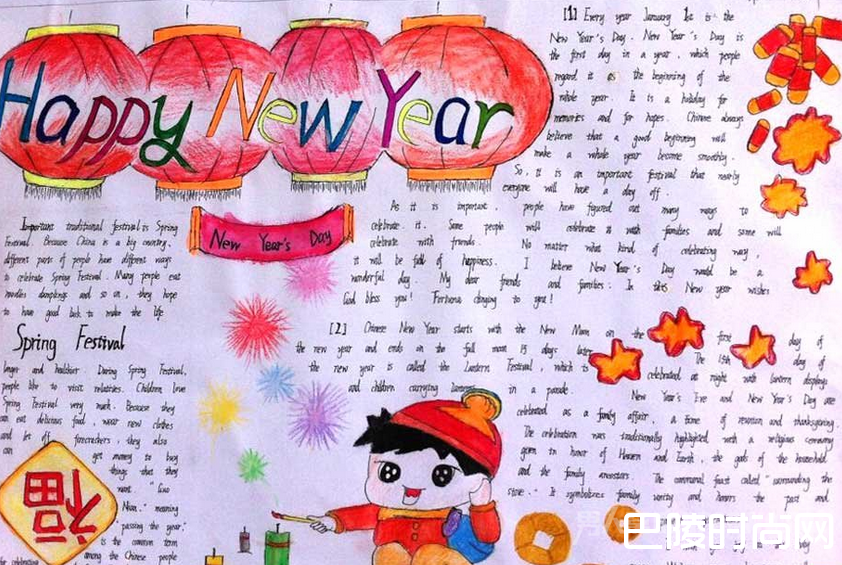 Happy New Year
[1] Every year January 1st is the
New Year's Day. New Year's Day is
the first day in a year, which people
regard it as the beginning of the
whole year. It is a holiday for
memories and for hopes. Chinese always
believe that a good beginning will
make a whole year become smoothly.
So, it is an important festival that nearly
everyone will have a day off.
As it is important, people have figured out many ways to
celebrate it. Some people will celebrate it with families and some will
celebrate with friends. No matter what kind of celebrating way,
it will be full of happiness. I believe New Year's Day would be a
wonderful day. My dear friends and families: In this New year wishes
God bless you! Fortuna clinging to you!
New Year's Day
Important traditional festival is Spring
Festival. Because China is a big country,
different parts of people have different ways
to celebrate Spring Festival. Many people eat
noodles dumplings and so on, they hope
to have good luck to make the life
Spring Festival
longer and healthier. During Spring Festival,
people like to visit relatives. Children love
Spring Festival very much. Because they
can eat delicious food, wear new clothes
and let off firecrackers, they also
can get money to buy
things that they
want. "Guo
Nian," meaning
"passing the year,"
is the common term
among the Chinese people
the celebrating
福
[2] Chinese New Year starts with the New Moon on the first day of
the new year and ends on the full moon 15 days later. The 15th day of
the new year is called the Lantern Festival, which is celebrated at night with lantern displays
and children carrying lanterns in a parade.
New Year's Eve and New Year's Day are
celebrated as a family affair, a time of reunion and thanksgiving.
The celebration was traditionally highlighted with a religious ceremony
given in honor of Heaven and Earth, the gods of the household
and the family ancestors. The communal feast called "surrounding the
stove." It symbolizes family unity and honors the past and
巴陵时尚网